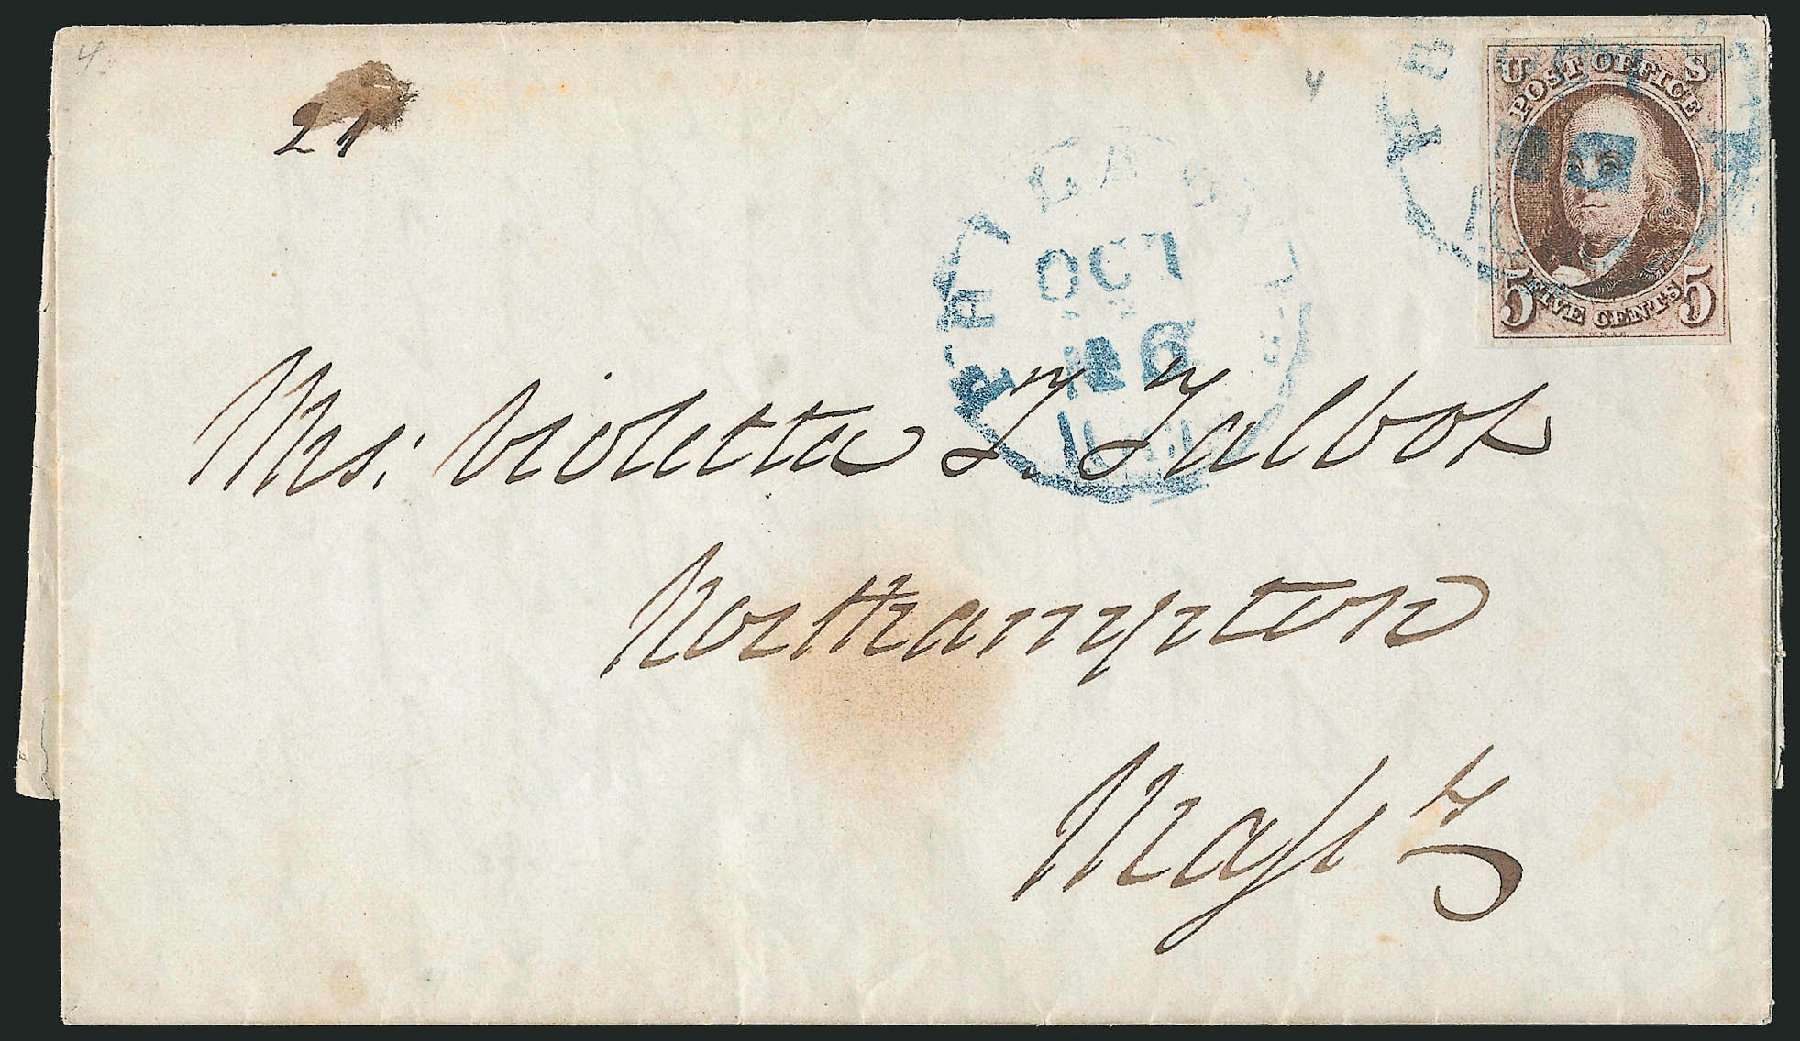 4.
21
4
U S
POST OFFICE
5 FIVE CENTS 5
OCT
16
Mrs: Violetta L. Talbot
Northampton
Mass